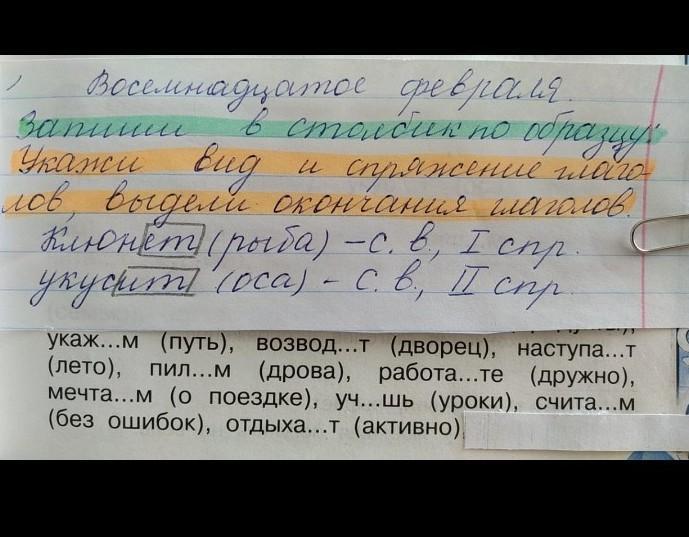 Восемнадцатое февраля.
Запиши в столбик по образцу:
Укажи вид и спряжение глаго-
лов, выдели окончания глаголов.
Клюнет (рыба) – с. в., I спр.
укусит (оса) – с. в., II спр.
укаж...м (путь), возвод...т (дворец), наступа...т
(лето), пил...м (дрова), работа...те (дружно),
мечта...м (о поездке), уч...шь (уроки), счита...м
(без ошибок), отдыха...т (активно)